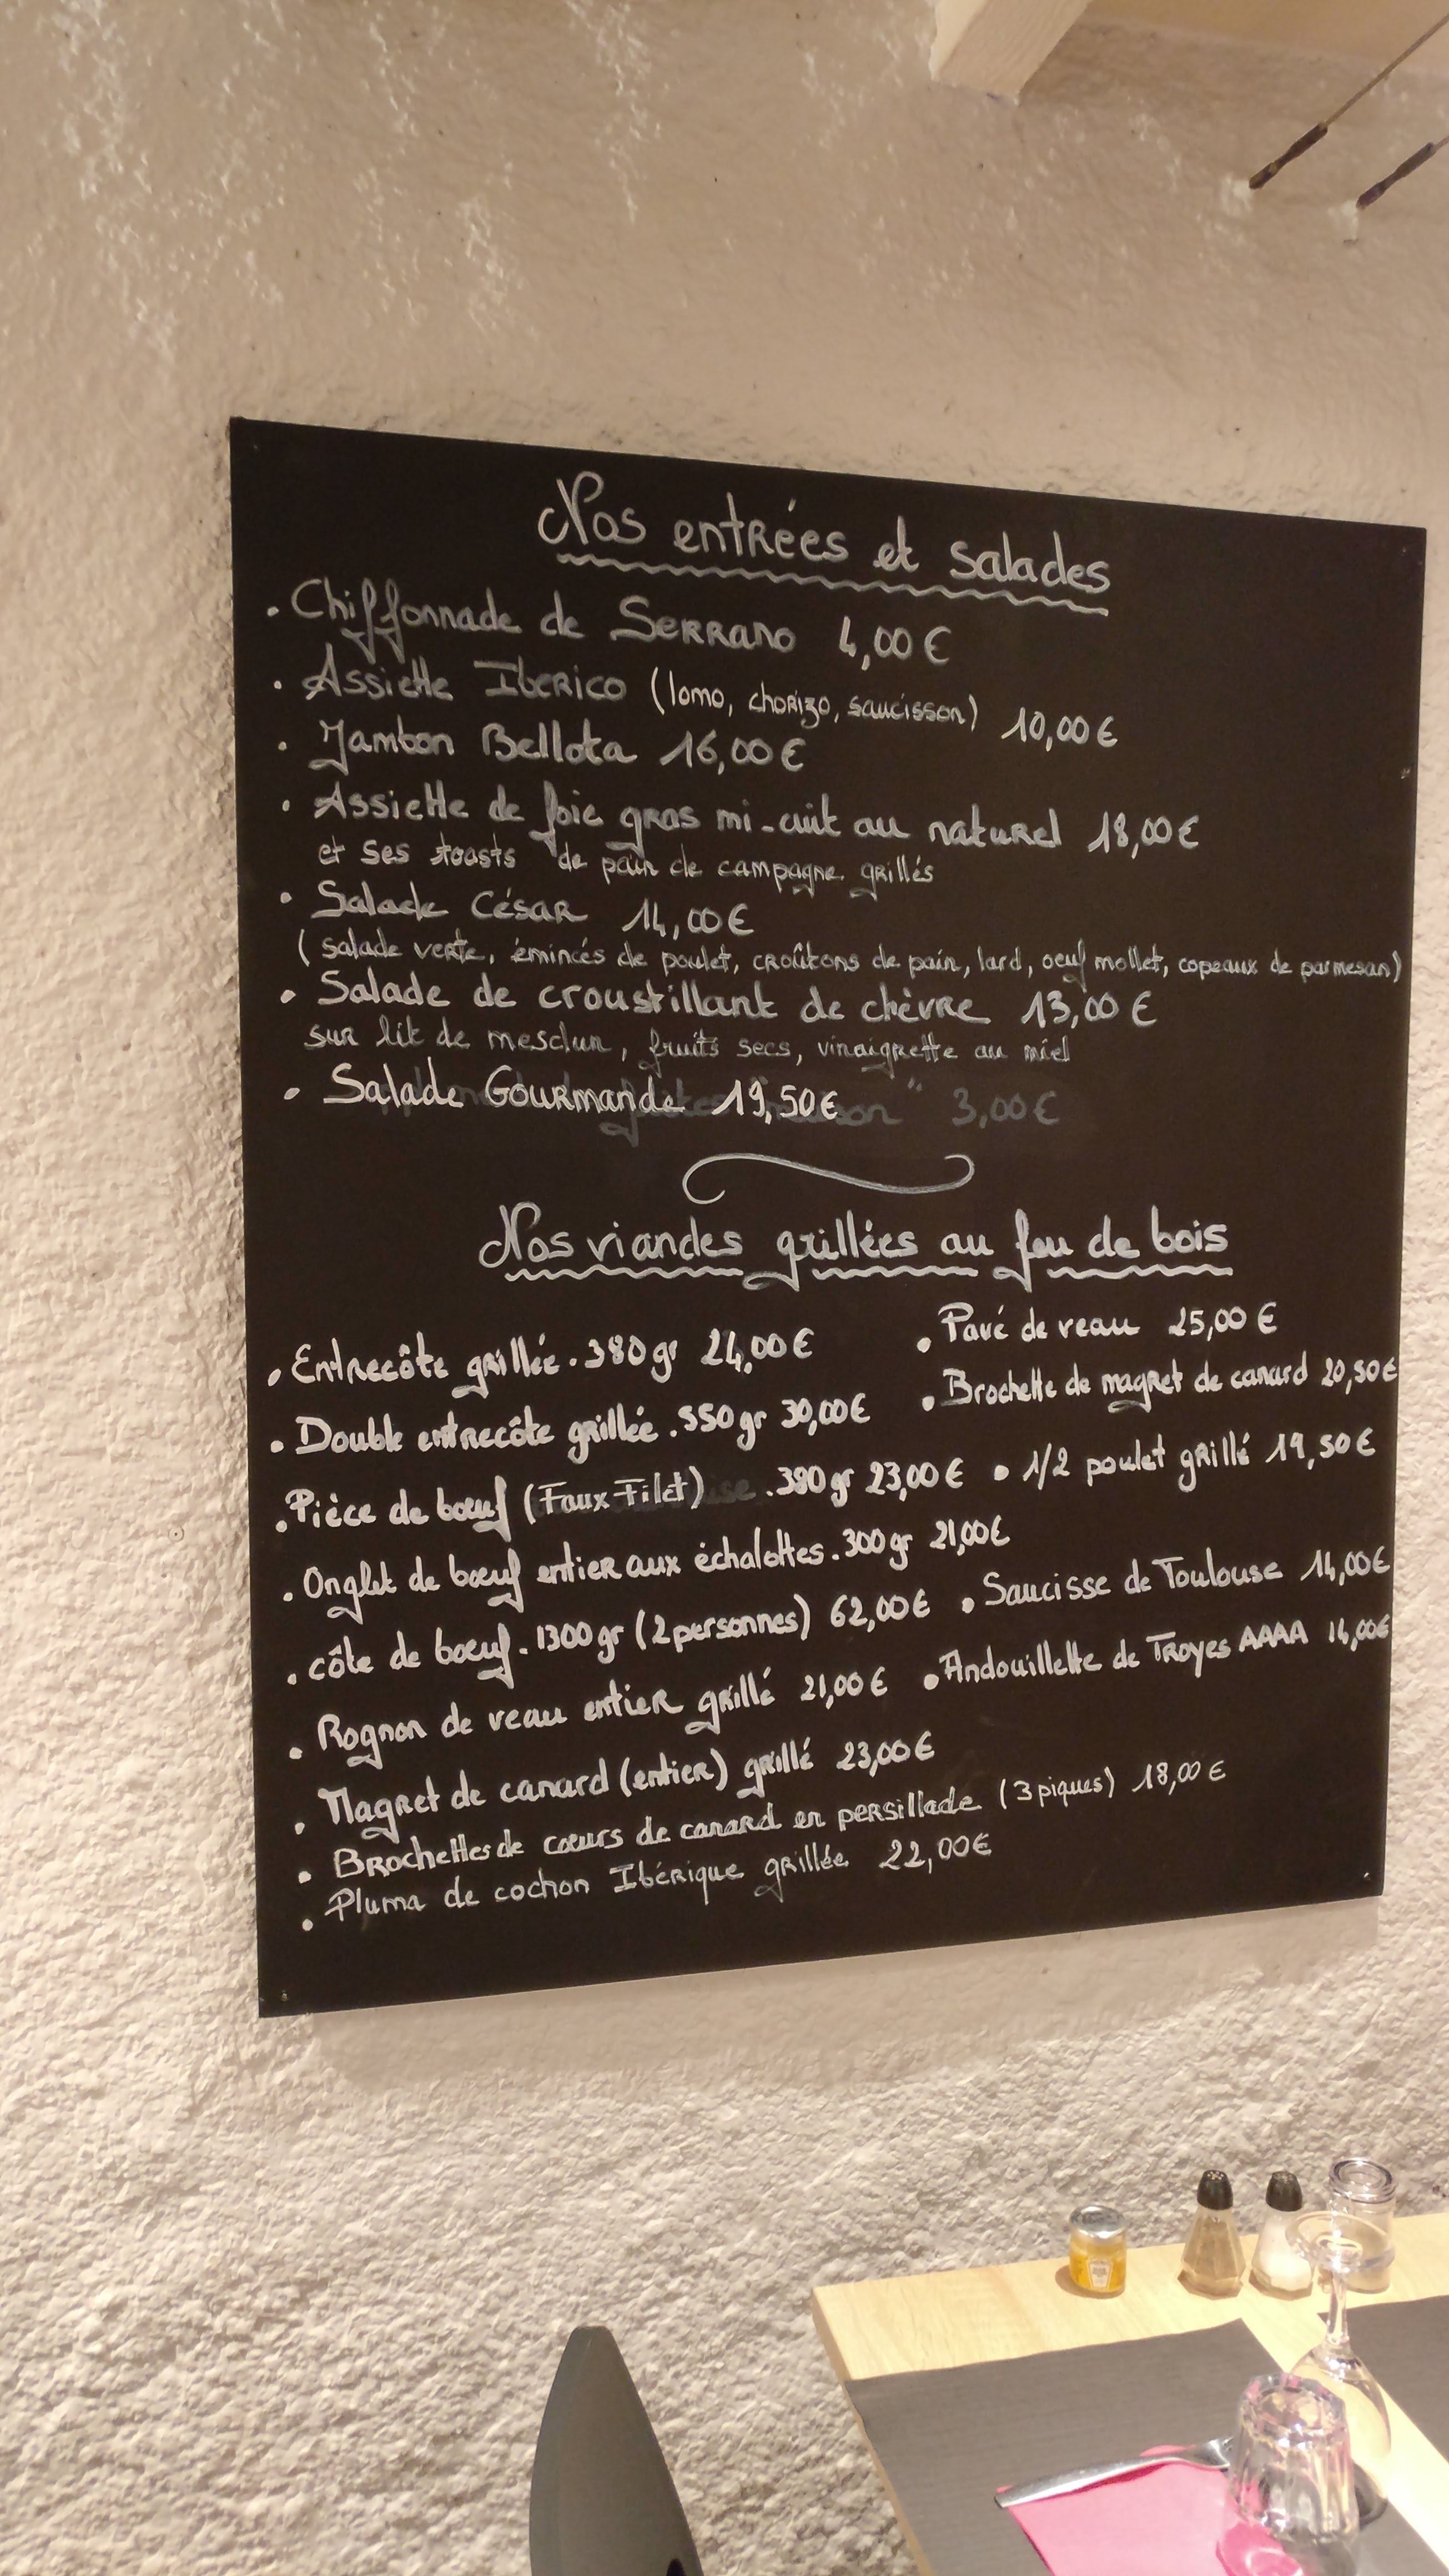 Nos entrées et salades
• Chiffonnade de Serrano 4,00 €
• Assiette Iberico (lomo, chorizo, saucisson) 10,00 €
• Jambon Bellota 16,00 €
• Assiette de foie gras mi-cuit au naturel 18,00 €
et ses toasts de pain de campagne grillés
• Salade César 14,00 €
( salade verte, émincés de poulet, croûtons de pain, lard, oeuf mollet, copeaux de parmesan)
• Salade de croustillant de chèvre 13,00 €
sur lit de mesclun, fruits secs, vinaigrette au miel
• Salade Gourmande 19,50 €
" 3,00 €
Nos viandes grillées au feu de bois
• Entrecôte grillée . 380 gr 24,00 €
• Pavé de veau 25,00 €
• Double entrecôte grillée . 550 gr 30,00 €
• Brochette de magret de canard 20,50 €
• Pièce de bœuf (Faux Filet) . 380 gr 23,00 €
• 1/2 poulet grillé 19,50 €
• Onglet de bœuf entier aux échalottes . 300 gr 21,00 €
• côte de bœuf . 1300 gr (2 personnes) 62,00 €
• Saucisse de Toulouse 14,00 €
• Rognon de veau entier grillé 21,00 €
• Andouillette de Troyes AAAA 14,00 €
• Magret de canard (entier) grillé 23,00 €
• Brochettes de cœurs de canard en persillade (3 piques) 18,00 €
• Pluma de cochon Ibérique grillée 22,00 €